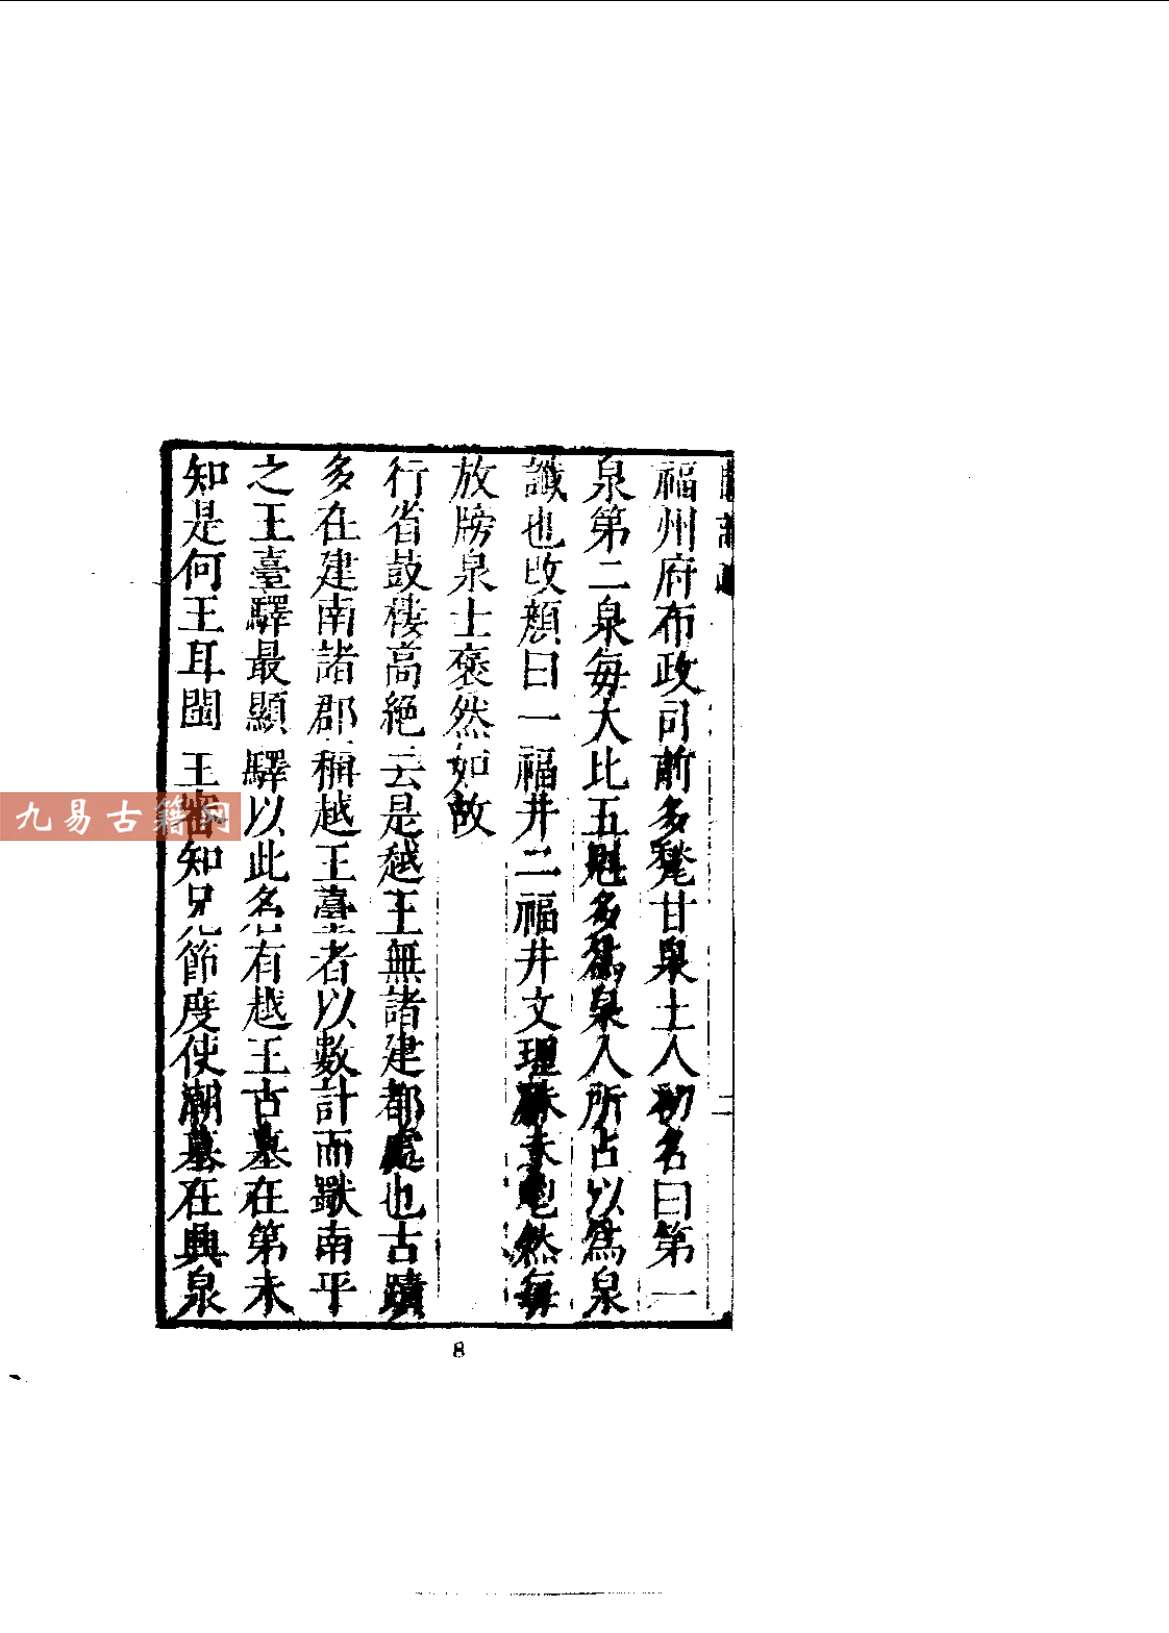 二
福州府布政司前多甃甘泉土人初名曰第一
泉第二泉每大比五魁多為泉人所占以為泉
讖也改顏曰一福井二福井文理殊未也然每
放牓泉士褒然如故
行省鼓樓高絕云是越王無諸建都處也古蹟
多在建南諸郡稱越王臺者以數計而獨南平
之王臺驛最顯驛以此名有越王古墓在第未
知是何王耳閩王審知兄節度使潮墓在典泉
8
九易古籍网